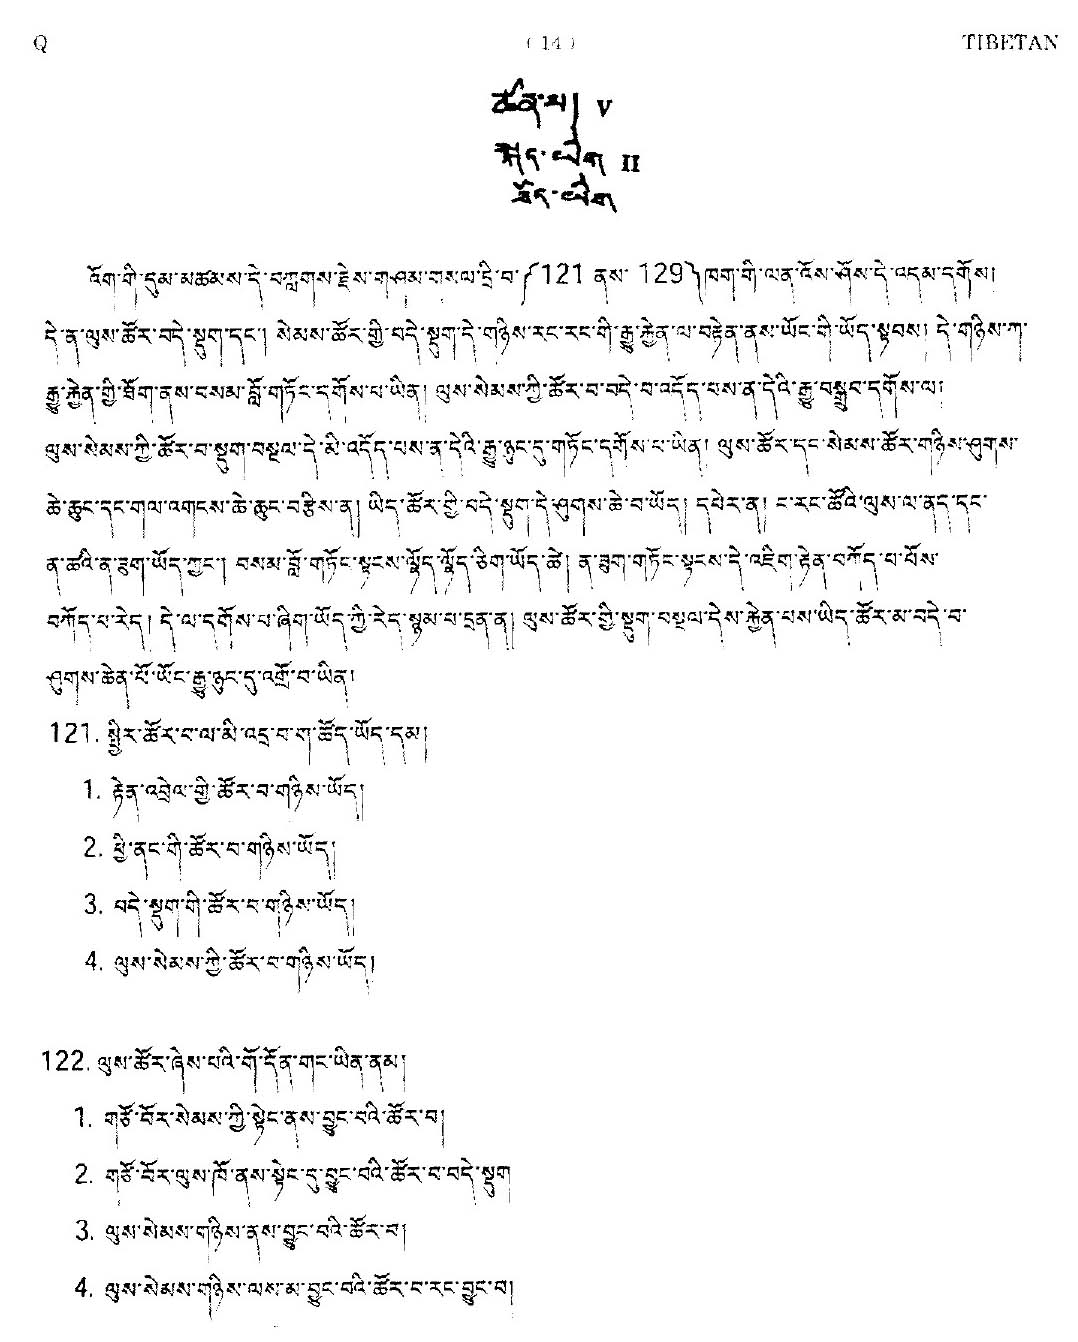 Q ( 14 ) TIBETAN
ཚན་པ། V
སྐད་ཡིག II
བོད་ཡིག
འོག་གི་དུམ་མཚམས་དེ་བཀླགས་རྗེས་གཤམ་གསལ་དྲི་བ་(121 ནས་ 129)ཁག་གི་ལན་འོས་ཤོས་དེ་འདམ་དགོས།
དེ་ན་ལུས་ཚོར་བདེ་སྡུག་དང་། སེམས་ཚོར་གྱི་བདེ་སྡུག་དེ་གཉིས་རང་རང་གི་རྒྱུ་རྐྱེན་ལ་བརྟེན་ནས་ཡོང་གི་ཡོད་སྟབས། དེ་གཉིས་ཀ་
རྒྱུ་རྐྱེན་གྱི་ཐོག་ནས་བསམ་བློ་གཏོང་དགོས་པ་ཡིན། ལུས་སེམས་ཀྱི་ཚོར་བ་བདེ་བ་འདོད་པས་ན་དེའི་རྒྱུ་བསྒྲུབ་དགོས་ལ།
ལུས་སེམས་ཀྱི་ཚོར་བ་སྡུག་བསྔལ་དེ་མི་འདོད་པས་ན་དེའི་རྒྱུ་ཉུང་དུ་གཏོང་དགོས་པ་ཡིན། ལུས་ཚོར་དང་སེམས་ཚོར་གཉིས་ཤུགས་
ཆེ་ཆུང་དང་གལ་འགངས་ཆེ་ཆུང་བརྩིས་ན། ཡིད་ཚོར་གྱི་བདེ་སྡུག་དེ་ཤུགས་ཆེ་བ་ཡོད། དཔེར་ན། ང་རང་ཚོའི་ལུས་ལ་ནད་དང་
ན་ཚའི་ན་ཟུག་ཡོད་ཀྱང་། བསམ་བློ་གཏོང་སྟངས་ལྷོད་ལྷོད་ཅིག་ཡོད་ཚེ། ན་ཟུག་གཏོང་སྟངས་དེ་འཇིག་རྟེན་བཀོད་པ་པོས་
བཀོད་པ་རེད། དེ་ལ་དགོས་པ་ཞིག་ཡོད་ཀྱི་རེད་སྙམ་པ་དྲན་ན། ལུས་ཚོར་གྱི་སྡུག་བསྔལ་དེས་རྐྱེན་པས་ཡིད་ཚོར་མ་བདེ་བ་
ཤུགས་ཆེན་པོ་ཡོང་རྒྱུ་ཉུང་དུ་འགྲོ་བ་ཡིན།
121. སྤྱིར་ཚོར་བ་ལ་མི་འདྲ་བ་ག་ཚོད་ཡོད་དམ།
1. རྟེན་འབྲེལ་གྱི་ཚོར་བ་གཉིས་ཡོད།
2. ཕྱི་ནང་གི་ཚོར་བ་གཉིས་ཡོད།
3. བདེ་སྡུག་གི་ཚོར་བ་གཉིས་ཡོད།
4. ལུས་སེམས་ཀྱི་ཚོར་བ་གཉིས་ཡོད།
122. ལུས་ཚོར་ཞེས་པའི་གོ་དོན་གང་ཡིན་ནམ།
1. གཙོ་བོར་སེམས་ཀྱི་སྟེང་ནས་བྱུང་བའི་ཚོར་བ།
2. གཙོ་བོར་ལུས་ཁོ་ནས་སྟེང་དུ་བྱུང་བའི་ཚོར་བ་བདེ་སྡུག
3. ལུས་སེམས་གཉིས་ནས་བྱུང་བའི་ཚོར་བ།
4. ལུས་སེམས་གཉིས་ལས་མ་བྱུང་བའི་ཚོར་བ་རང་བྱུང་བ།